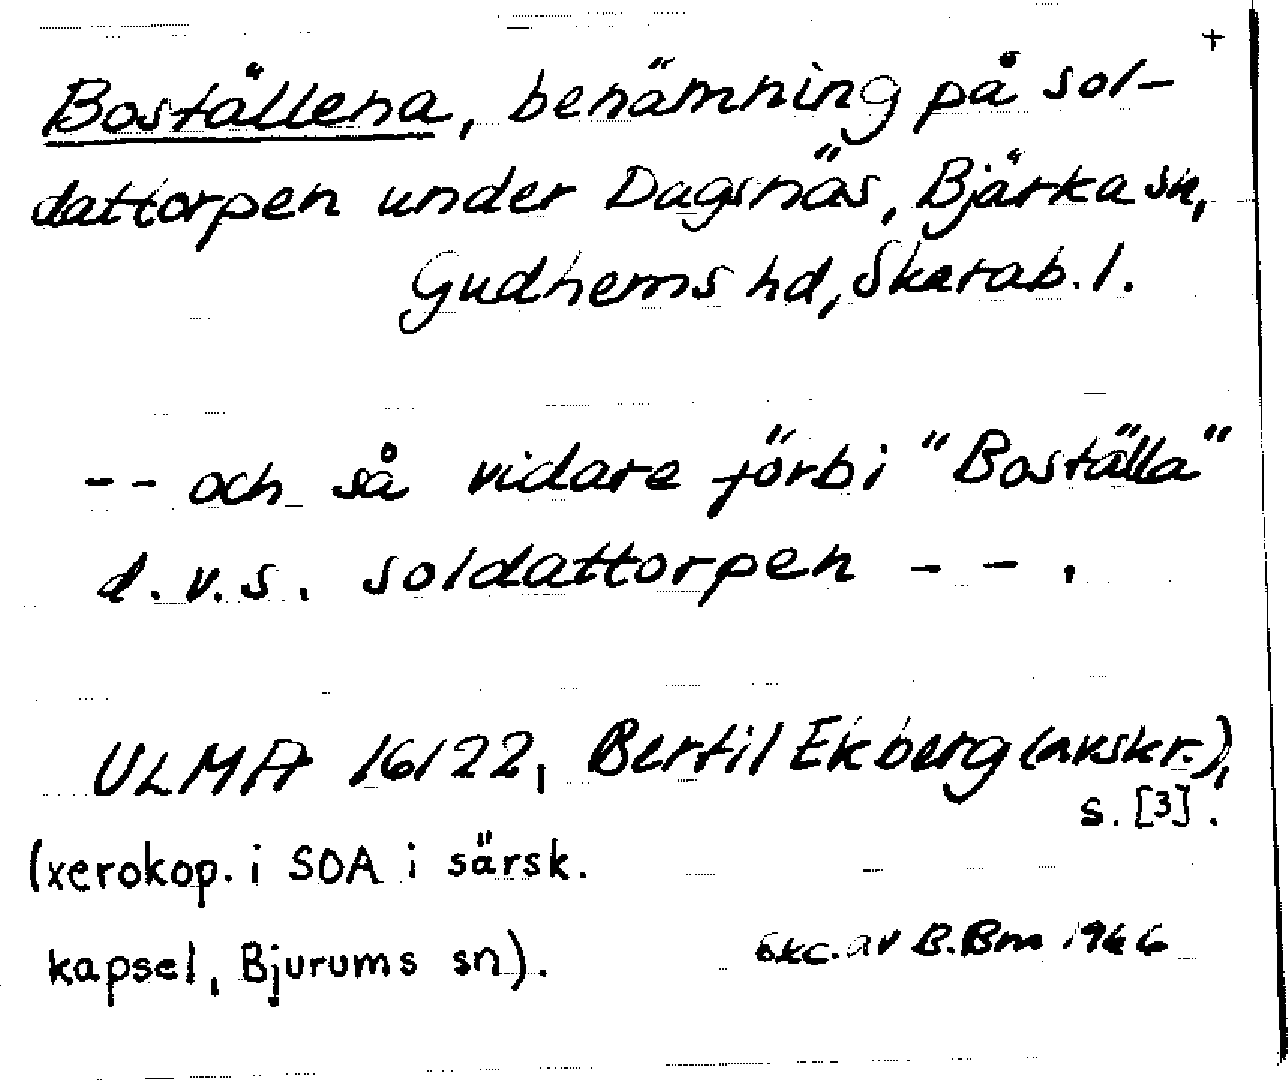 +
Boställena, benämning på sol-
dattorpen under Dagsnäs, Bjärka sn,
Gudhems hd, Skarab. l.
-- och så vidare förbi "Boställa"
d.v.s. soldattorpen -- .
ULMA 16122, Bertil Ekberg (avskr.),
s. [3].
(xerokop. i SOA i särsk.
kapsel, Bjurums sn).
Exc. av B.Bm 1966